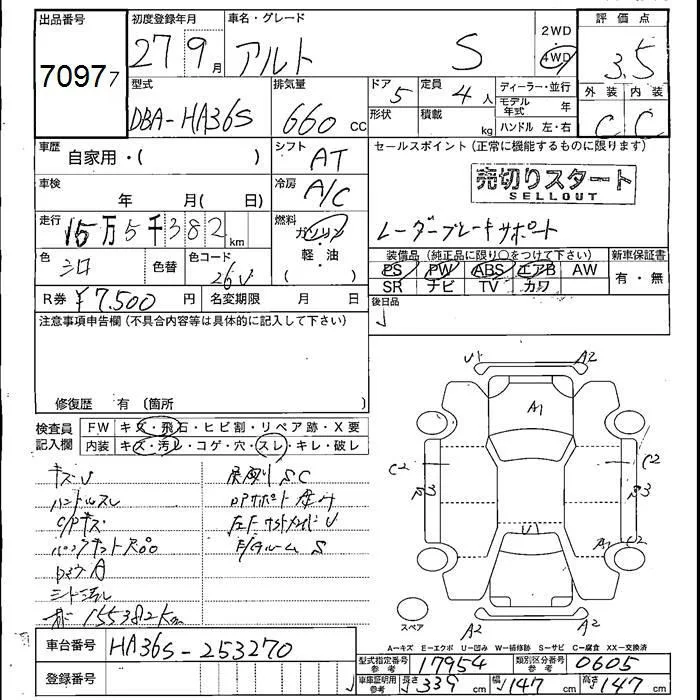 出品番号 初度登録年月 車名・グレード 評価点
70977 27 9月 アルト S 2WD 4WD 3.5
型式 排気量 ドア 定員 ディーラー・並行 外装 内装
DBA-HA36S 660cc 5 4人 モデル年式 年 C C
形状 積載 kg ハンドル 左・右
車歴 自家用・( ) シフト AT セールスポイント (正常に機能するものに限ります)
売切りスタート
SELLOUT
車検 年 月( 日) 冷房 A/C
走行 15万5千382km 燃料 ガソリン・軽・油( ) レーダーブレーキサポート
色 シロ 色替 色コード 26U
装備品 (純正品に限り○をつけて下さい) 新車保証書
PS PW ABS エアB AW 有・無
SR ナビ TV カワ
R券 ¥7,500円 名変期限 月 日 後日品
注意事項申告欄 (不具合内容等は具体的に記入して下さい)
修復歴 有 (箇所
検査員記入欄 FW キズ・飛石・ヒビ割・リペア跡・X要
内装 キズ・汚レ・コゲ・穴・スレ・キレ・破レ
キズU
ハンドルスレ
C/Pキズ
パンクキット
155382km
U1 A2
A1
C2 C2
B3 B3
U1
A1 U2
スペア
A2 A2
A-キズ E-エクボ U-凹み W-補修跡 S-サビ C-腐食 XX-交換済
車台番号 HA36S-253270
登録番号
型式指定番号 参考 17954 類別区分番号 参考 0605
車庫証明用 参考 長さ 339cm 幅 147cm 高さ 147cm